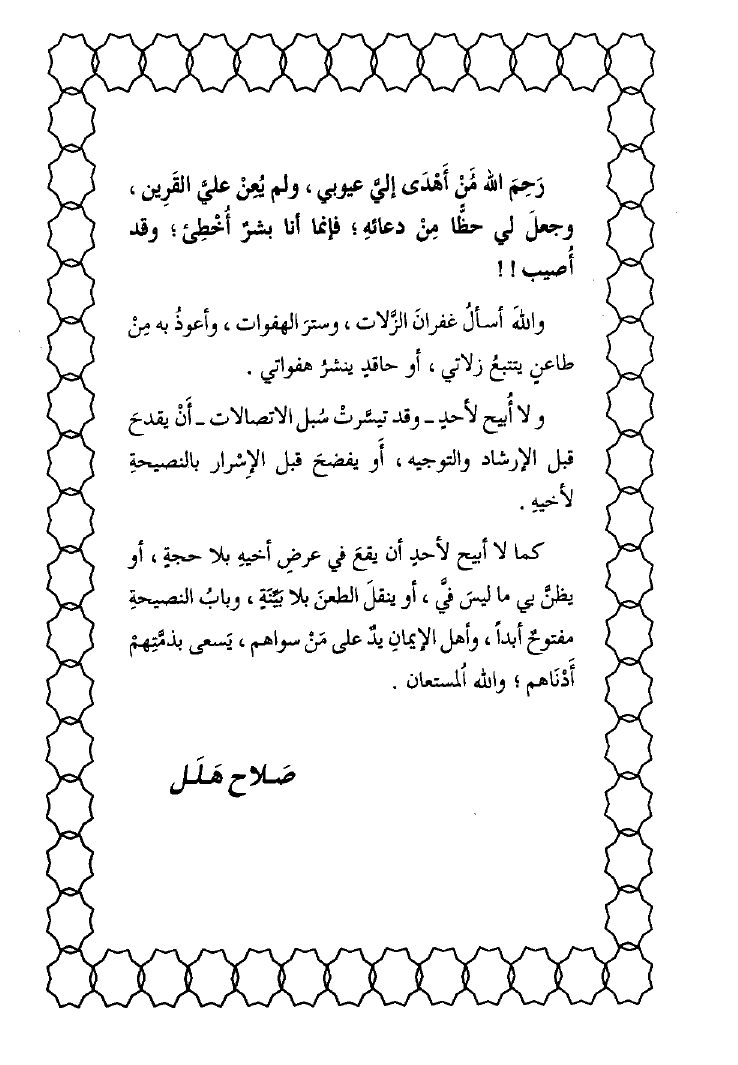 رَحِمَ الله مَُنْ أَهْدَى إليَّ عيوبي ، ولم يُعِنْ عليَّ القَرِين ،
وجعلَ لي حظًّا مِنْ دعائهِ ؛ فإنما أنا بشرٌ أُخْطِئ ؛ وقد
أُصيب ! !
واللهَ أسألُ غفرانَ الزَّلات ، وسترَ الهفوات ، وأعوذُ به مِنْ
طاعنٍ يتتبعُ زلاتي ، أو حاقدٍ ينشرُ هفواتي .
ولا أُبيح لأحدٍ ـ وقد تيسَّرتْ سُبل الاتصالات ـ أَنْ يقدحَ
قبل الإرشاد والتوجيه ، أَو يفضحَ قبل الإِسْرار بالنصيحةِ
لأخيهِ .
كما لا أبيح لأحدٍ أن يقعَ في عرضِ أخيهِ بلا حجةٍ ، أو
يظنَّ بي ما ليسَ فيَّ ، أو ينقلَ الطعنَ بلا بَيِّنَةٍ ، وبابُ النصيحةِ
مفتوحٌ أبداً ، وأهل الإيمانِ يدٌ على مَنْ سواهم ، يَسعى بذمَّتِهمْ
أَدْنَاهم ؛ والله اُلمستعان .
صَلاح هَلَل